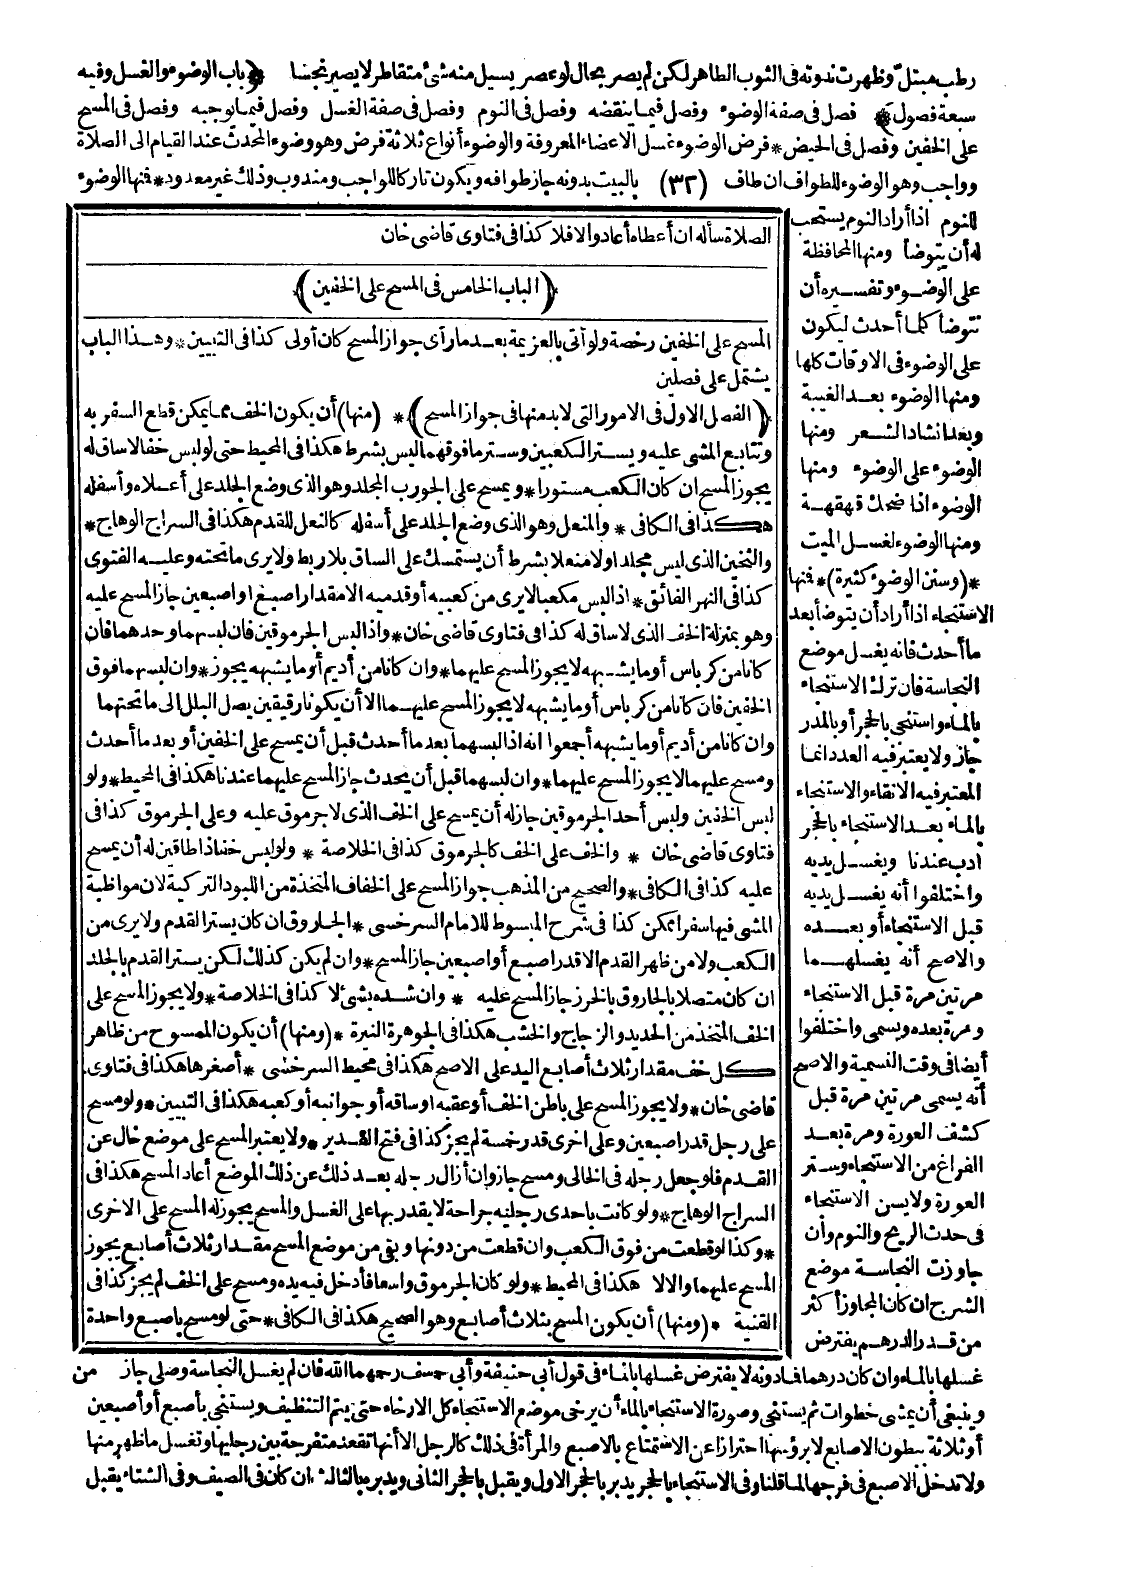 رطب مبتل وظهرت ندوته فى الثوب الطاهر لكن لم يصر بحال لو عصر يسيل منه شئ متقاطر لا يصير نجسا ﴿باب الوضوء والغسل وفيه
سبعة فصول﴾ فصل فى صفة الوضوء وفصل فيما ينقضه وفصل فى النوم وفصل فى صفة الغسل وفصل فيما يوجبه وفصل فى المسح
على الخفين وفصل فى الحيض * فرض الوضوء غسل الاعضاء المعروفة والوضوء أنواع ثلاثة فرض وهو وضوء المحدث عند القيام الى الصلاة
وواجب وهو الوضوء للطواف ان طاف (٣٢) بالبيت بدونه جاز طوافه ويكون تاركا للواجب ومندوب وذلك غير معدود * فنها الوضوء
للنوم اذا أراد النوم يستحب
له أن يتوضأ ومنها المحافظة
على الوضوء وتفسيره أن
تتوضأ كلما أحدث ليكون
على الوضوء فى الاوقات كلها
ومنها الوضوء بعد الغيبة
وبعد انشاد الشعر ومنها
الوضوء على الوضوء ومنها
الوضوء اذا ضحك قهقهة
ومنها الوضوء لغسل الميت
*(وسنن الوضوء كثيرة)* فنها
الاستنجاء اذا أراد أن يتوضأ بعد
ما أحدث فانه يغسل موضع
النجاسة فان ترك الاستنجاء
بالماء واستنجى بالحجر أو بالمدر
جاز ولا يعتبر فيه العدد انما
المعتبر فيه الانقاء والاستنجاء
بالماء بعد الاستنجاء بالحجر
ادب عندنا ويغسل يديه
واختلفوا أنه يغسل يديه
قبل الاستنجاء أو بعده
والاصح أنه يغسلهما
مرتين مرة قبل الاستنجاء
ومرة بعده ويسمى واختلفوا
أيضا فى وقت التسمية والاصح
أنه يسمى مرتين مرة قبل
كشف العورة ومرة بعد
الفراغ من الاستنجاء وستر
العورة ولا يسن الاستنجاء
فى حدث الريح والنوم وأن
جاوزت النجاسة موضع
الشرج ان كان المجاوز أكثر
من قدر الدرهم يفترض
الصلاة سأله ان أعطاه أعاد والا فلا كذا فى فتاوى قاضى خان
﴿الباب الخامس فى المسح على الخفين﴾
المسح على الخفين رخصة ولو أتى بالعزيمة بعد ما رأى جواز المسح كان أولى كذا فى التبيين * وهذا الباب
يشتمل على فصلين
﴿الفصل الاول فى الامور التى لا بد منها فى جواز المسح﴾ * (منها) أن يكون الخف مما يمكن قطع السفر به
وتتابع المشى عليه ويستر الكعبين وستر ما فوقهما ليس بشرط هكذا فى المحيط حتى لو لبس خفا لا ساق له
يجوز المسح ان كان الكعب مستورا * ويمسح على الجورب المجلد وهو الذى وضع الجلد على أعلاه وأسفله
هكذا فى الكافى * والمنعل وهو الذى وضع الجلد على أسفله كالنعل للقدم هكذا فى السراج الوهاج *
والثخين الذى ليس مجلدا ولا منعلا بشرط أن يستمسك على الساق بلا ربط ولا يرى ما تحته وعليه الفتوى
كذا فى النهر الفائق * اذا لبس مكعبا لا يرى من كعبيه أو قدميه الا مقدار اصبع أو اصبعين جاز المسح عليه
وهو بمنزلة الخف الذى لا ساق له كذا فى فتاوى قاضى خان * واذا لبس الجرموقين فان لبسهما وحدهما فان
كانا من كرباس أو ما يشبهه لا يجوز المسح عليهما * وان كانا من أديم أو ما يشبهه يجوز * وان لبسهما فوق
الخفين فان كانا من كرباس أو ما يشبهه لا يجوز المسح عليهما الا أن يكونا رقيقين يصل البلل الى ما تحتهما
وان كانا من أديم أو ما يشبهه أجمعوا انه اذا لبسهما بعد ما أحدث قبل أن يمسح على الخفين أو بعد ما أحدث
ومسح عليهما لا يجوز المسح عليهما * وان لبسهما قبل أن يحدث جاز المسح عليهما عندنا هكذا فى المحيط * ولو
لبس الخفين ولبس أحد الجرموقين جاز له أن يمسح على الخف الذى لا جرموق عليه وعلى الجرموق كذا فى
فتاوى قاضى خان * والخف على الخف كالجرموق كذا فى الخلاصة * ولو لبس خفا ذا طاقين له أن يمسح
عليه كذا فى الكافى * والصحيح من المذهب جواز المسح على الخفاف المتخذة من اللبود التركية لان مواظبة
المشى فيها سفرا يمكن كذا فى شرح المبسوط للامام السرخسى * الجاروق ان كان يستر القدم ولا يرى من
الكعب ولا من ظاهر القدم الا قدر اصبع أو اصبعين جاز المسح * وان لم يكن كذلك لكن يستر القدم بالجلد
ان كان متصلا بالجاروق بالخرز جاز المسح عليه * وان شده بشئ لا كذا فى الخلاصة * ولا يجوز المسح على
الخف المتخذ من الحديد والزجاج والخشب هكذا فى الجوهرة النيرة * (ومنها) أن يكون الممسوح من ظاهر
كل خف مقدار ثلاث أصابع اليد على الاصح هكذا فى محيط السرخسى * أصغرها هكذا فى فتاوى
قاضى خان * ولا يجوز المسح على باطن الخف أو عقبه أو ساقه أو جوانبه أو كعبه هكذا فى التبيين * ولو مسح
على رجل قدر اصبعين وعلى اخرى قدر خمسة لم يجز كذا فى فتح القدير * ولا يعتبر المسح على موضع خال عن
القدم فلو جعل رجله فى الخالى ومسح جاز وان أزال رجله بعد ذلك عن ذلك الموضع أعاد المسح هكذا فى
السراج الوهاج * ولو كانت باحدى رجليه جراحة لا يقدر بها على الغسل والمسح يجوز له المسح على الاخرى
* وكذا لو قطعت من فوق الكعب وان قطعت من دونها وبقى من موضع المسح مقدار ثلاث أصابع يجوز
المسح عليهما والا لا هكذا فى المحيط * ولو كان الجرموق واسعا فأدخل فيه يده ومسح على الخف لم يجز كذا فى
القنية * (ومنها) أن يكون المسح بثلاث أصابع وهو الصحيح هكذا فى الكافى * حتى لو مسح باصبع واحدة
غسلها بالماء وان كان درهما فادونه لا يفترض غسلها بالماء فى قول أبى حنيفة وأبى يوسف رحمهما الله فان لم يغسل النجاسة وصلى جاز من
وينبغى أن يمشى خطوات ثم يستنجى وصورة الاستنجاء بالماء أن يرخى موضع الاستنجاء كل الارخاء حتى يتم التنظيف ويستنجى بأصبع أو أصبعين
أو ثلاثة ببطون الاصابع لا برؤسها احترازا عن الاستمتاع بالاصبع والمرأة فى ذلك كالرجل الا أنها تقعد متفرجة بين رجليها وتغسل ما ظهر منها
ولا تدخل الاصبع فى فرجها لما قلنا وفى الاستنجاء بالحجر يدبر بالحجر الاول ويقبل بالحجر الثانى ويدبر بالثالث ان كان فى الصيف وفى الشتاء يقبل